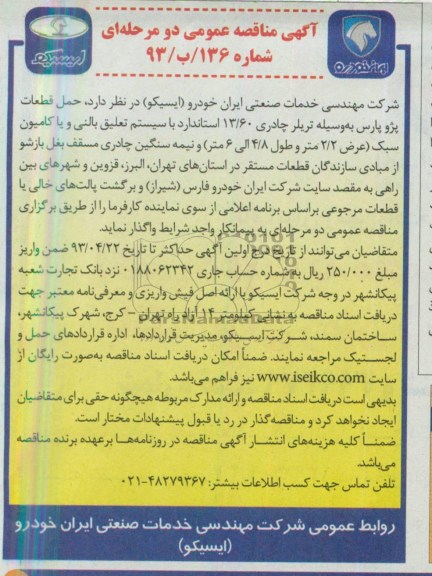 آگهی مناقصه عمومی دو مرحله‌ای
شماره ۱۳۶/ب/۹۳
ایران خودرو
ایسیکو
شرکت مهندسی خدمات صنعتی ایران خودرو (ایسیکو) در نظر دارد، حمل قطعات
پژو پارس به‌وسیله تریلر چادری ۱۳/۶۰ استاندارد با سیستم تعلیق بالنی و یا کامیون
سبک (عرض ۲/۲ متر و طول ۴/۸ الی ۶ متر) و نیمه سنگین چادری مسقف بغل بازشو
از مبادی سازندگان قطعات مستقر در استان‌های تهران، البرز، قزوین و شهرهای بین
راهی به مقصد سایت شرکت ایران خودرو فارس (شیراز) و برگشت پالت‌های خالی یا
قطعات مرجوعی براساس برنامه اعلامی از سوی نماینده کارفرما را از طریق برگزاری
مناقصه عمومی دو مرحله‌ای به پیمانکار واجد شرایط واگذار نماید.
متقاضیان می‌توانند از تاریخ درج اولین آگهی حداکثر تا تاریخ ۹۳/۰۴/۲۲ ضمن واریز
مبلغ ۲۵۰/۰۰۰ ریال به شماره حساب جاری ۰۱۸۸۰۶۲۳۴۲ نزد بانک تجارت شعبه
پیکانشهر در وجه شرکت ایسیکو با ارائه اصل فیش واریزی و معرفی‌نامه معتبر جهت
دریافت اسناد مناقصه به نشانی کیلومتر ۱۴ آزادراه تهران – کرج، شهرک پیکانشهر،
ساختمان سمند، شرکت ایسیکو، مدیریت قراردادها، اداره قراردادهای حمل و
لجستیک مراجعه نمایند. ضمناً امکان دریافت اسناد مناقصه به‌صورت رایگان از
سایت www.iseikco.com نیز فراهم می‌باشد.
بدیهی است دریافت اسناد مناقصه و ارائه مدارک مربوطه هیچگونه حقی برای متقاضیان
ایجاد نخواهد کرد و مناقصه‌گذار در رد یا قبول پیشنهادات مختار است.
ضمناً کلیه هزینه‌های انتشار آگهی مناقصه در روزنامه‌ها برعهده برنده مناقصه
می‌باشد.
تلفن تماس جهت کسب اطلاعات بیشتر: ۴۸۲۷۹۳۶۷-۰۲۱
روابط عمومی شرکت مهندسی خدمات صنعتی ایران خودرو
(ایسیکو)